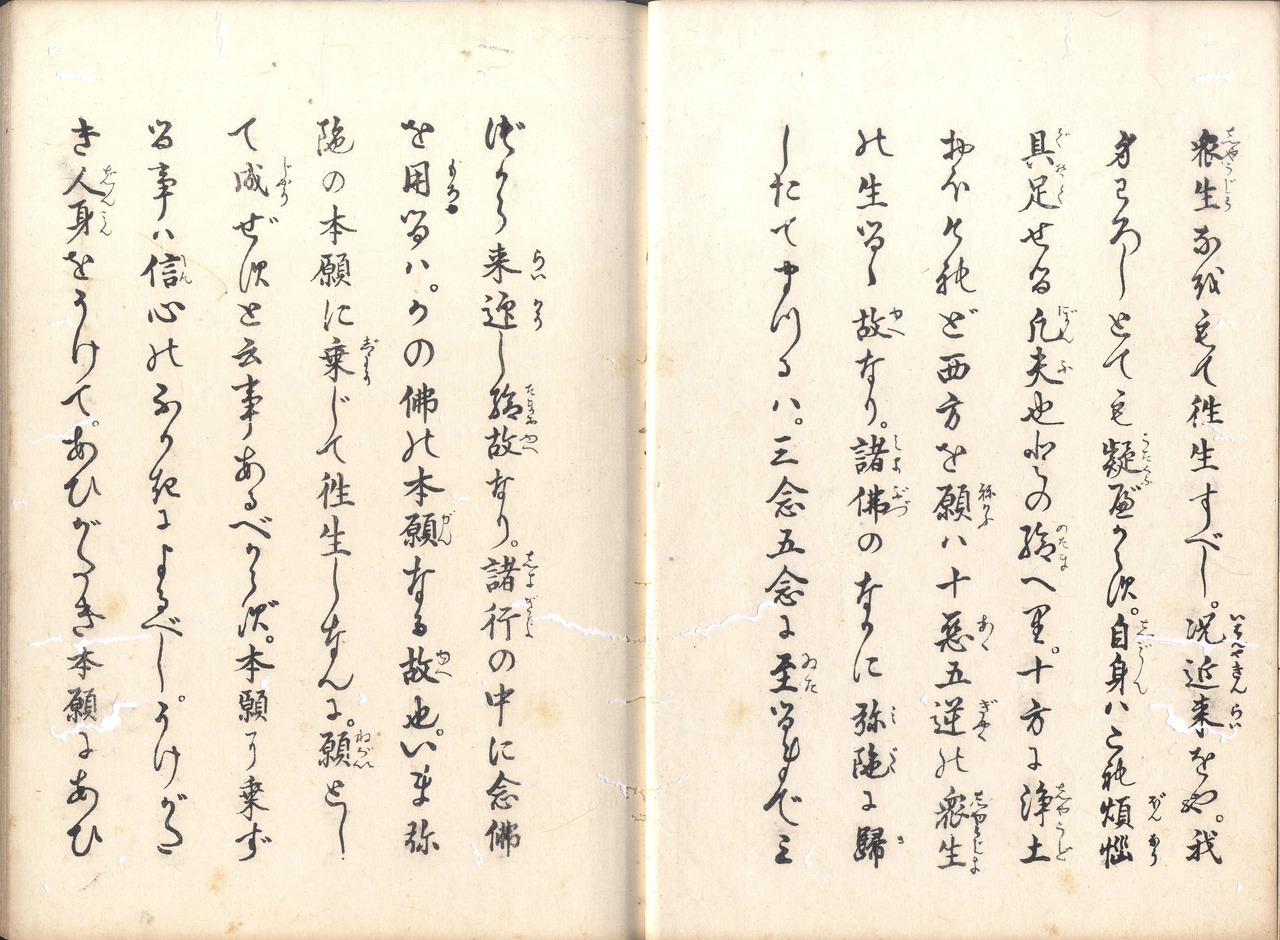 衆生なを以もて徃生すべし。况近来をや。我
身わろしとても疑べからず。自身ハこれ煩惱
具足せる凡夫也とのの給へり。十方に浄土
おほけれど西方を願ハ十惡五逆の衆生
の生るゝ故なり。諸佛のなかに弥陁に歸
したてまつるハ。三念五念に至るまでミ
づから来迎し給故なり。諸行の中に念佛
を用るハ。かの佛の本願なる故也。いま弥
陁の本願に乗じて徃生しなんに。願とし
て成ぜずと云事あるべからず。本願に乗ず
る事ハ信心のふかきによるべし。うけがた
き人身をうけて。あひがたき本願にあひ